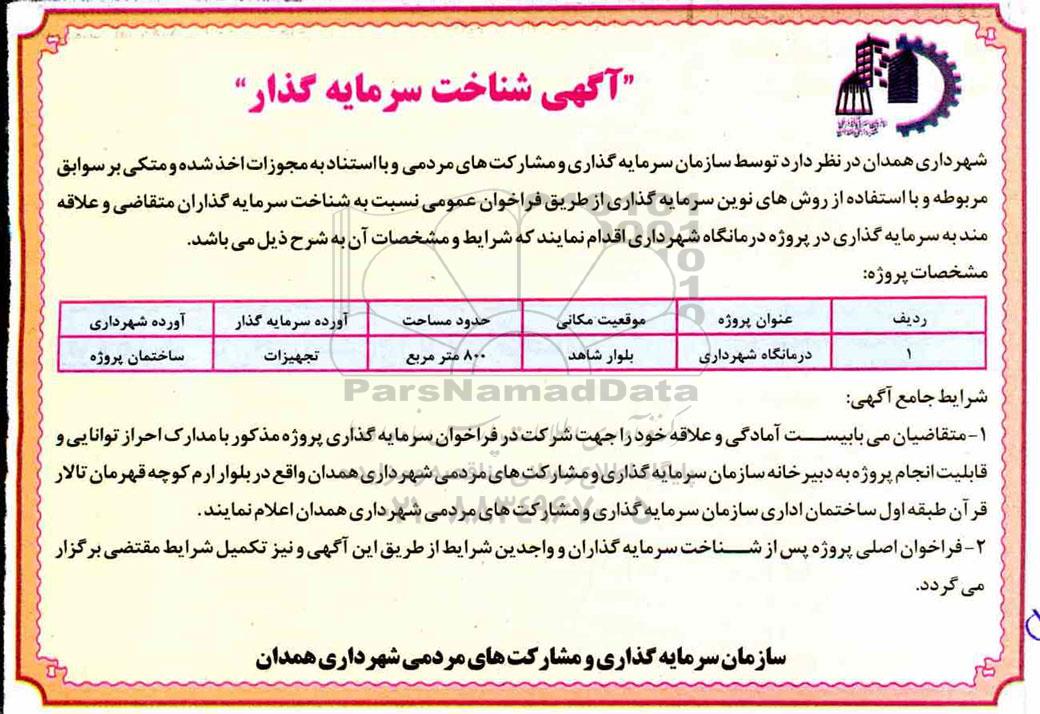 "آگهی شناخت سرمایه گذار"
شهرداری همدان در نظر دارد توسط سازمان سرمایه گذاری و مشارکت های مردمی و با استناد به مجوزات اخذ شده و متکی بر سوابق
مربوطه و با استفاده از روش های نوین سرمایه گذاری از طریق فراخوان عمومی نسبت به شناخت سرمایه گذاران متقاضی و علاقه
مند به سرمایه گذاری در پروژه درمانگاه شهرداری اقدام نمایند که شرایط و مشخصات آن به شرح ذیل می باشد.
مشخصات پروژه:
ردیف عنوان پروژه موقعیت مکانی حدود مساحت آورده سرمایه گذار آورده شهرداری
۱ درمانگاه شهرداری بلوار شاهد ۸۰۰ متر مربع تجهیزات ساختمان پروژه
ParsNamadData
شرایط جامع آگهی:
۱- متقاضیان می بابیست آمادگی و علاقه خود را جهت شرکت در فراخوان سرمایه گذاری پروژه مذکور با مدارک احراز توانایی و
قابلیت انجام پروژه به دبیر خانه سازمان سرمایه گذاری و مشارکت های مردمی شهرداری همدان واقع در بلوار ارم کوچه قهرمان تالار
قرآن طبقه اول ساختمان اداری سازمان سرمایه گذاری و مشارکت های مردمی شهرداری همدان اعلام نمایند.
۰۲۱-۸۸۳۴۹۶۷۰-۵
۲- فراخوان اصلی پروژه پس از شناخت سرمایه گذاران و واجدین شرایط از طریق این آگهی و نیز تکمیل شرایط مقتضی برگزار
می گردد.
سازمان سرمایه گذاری و مشارکت های مردمی شهرداری همدان